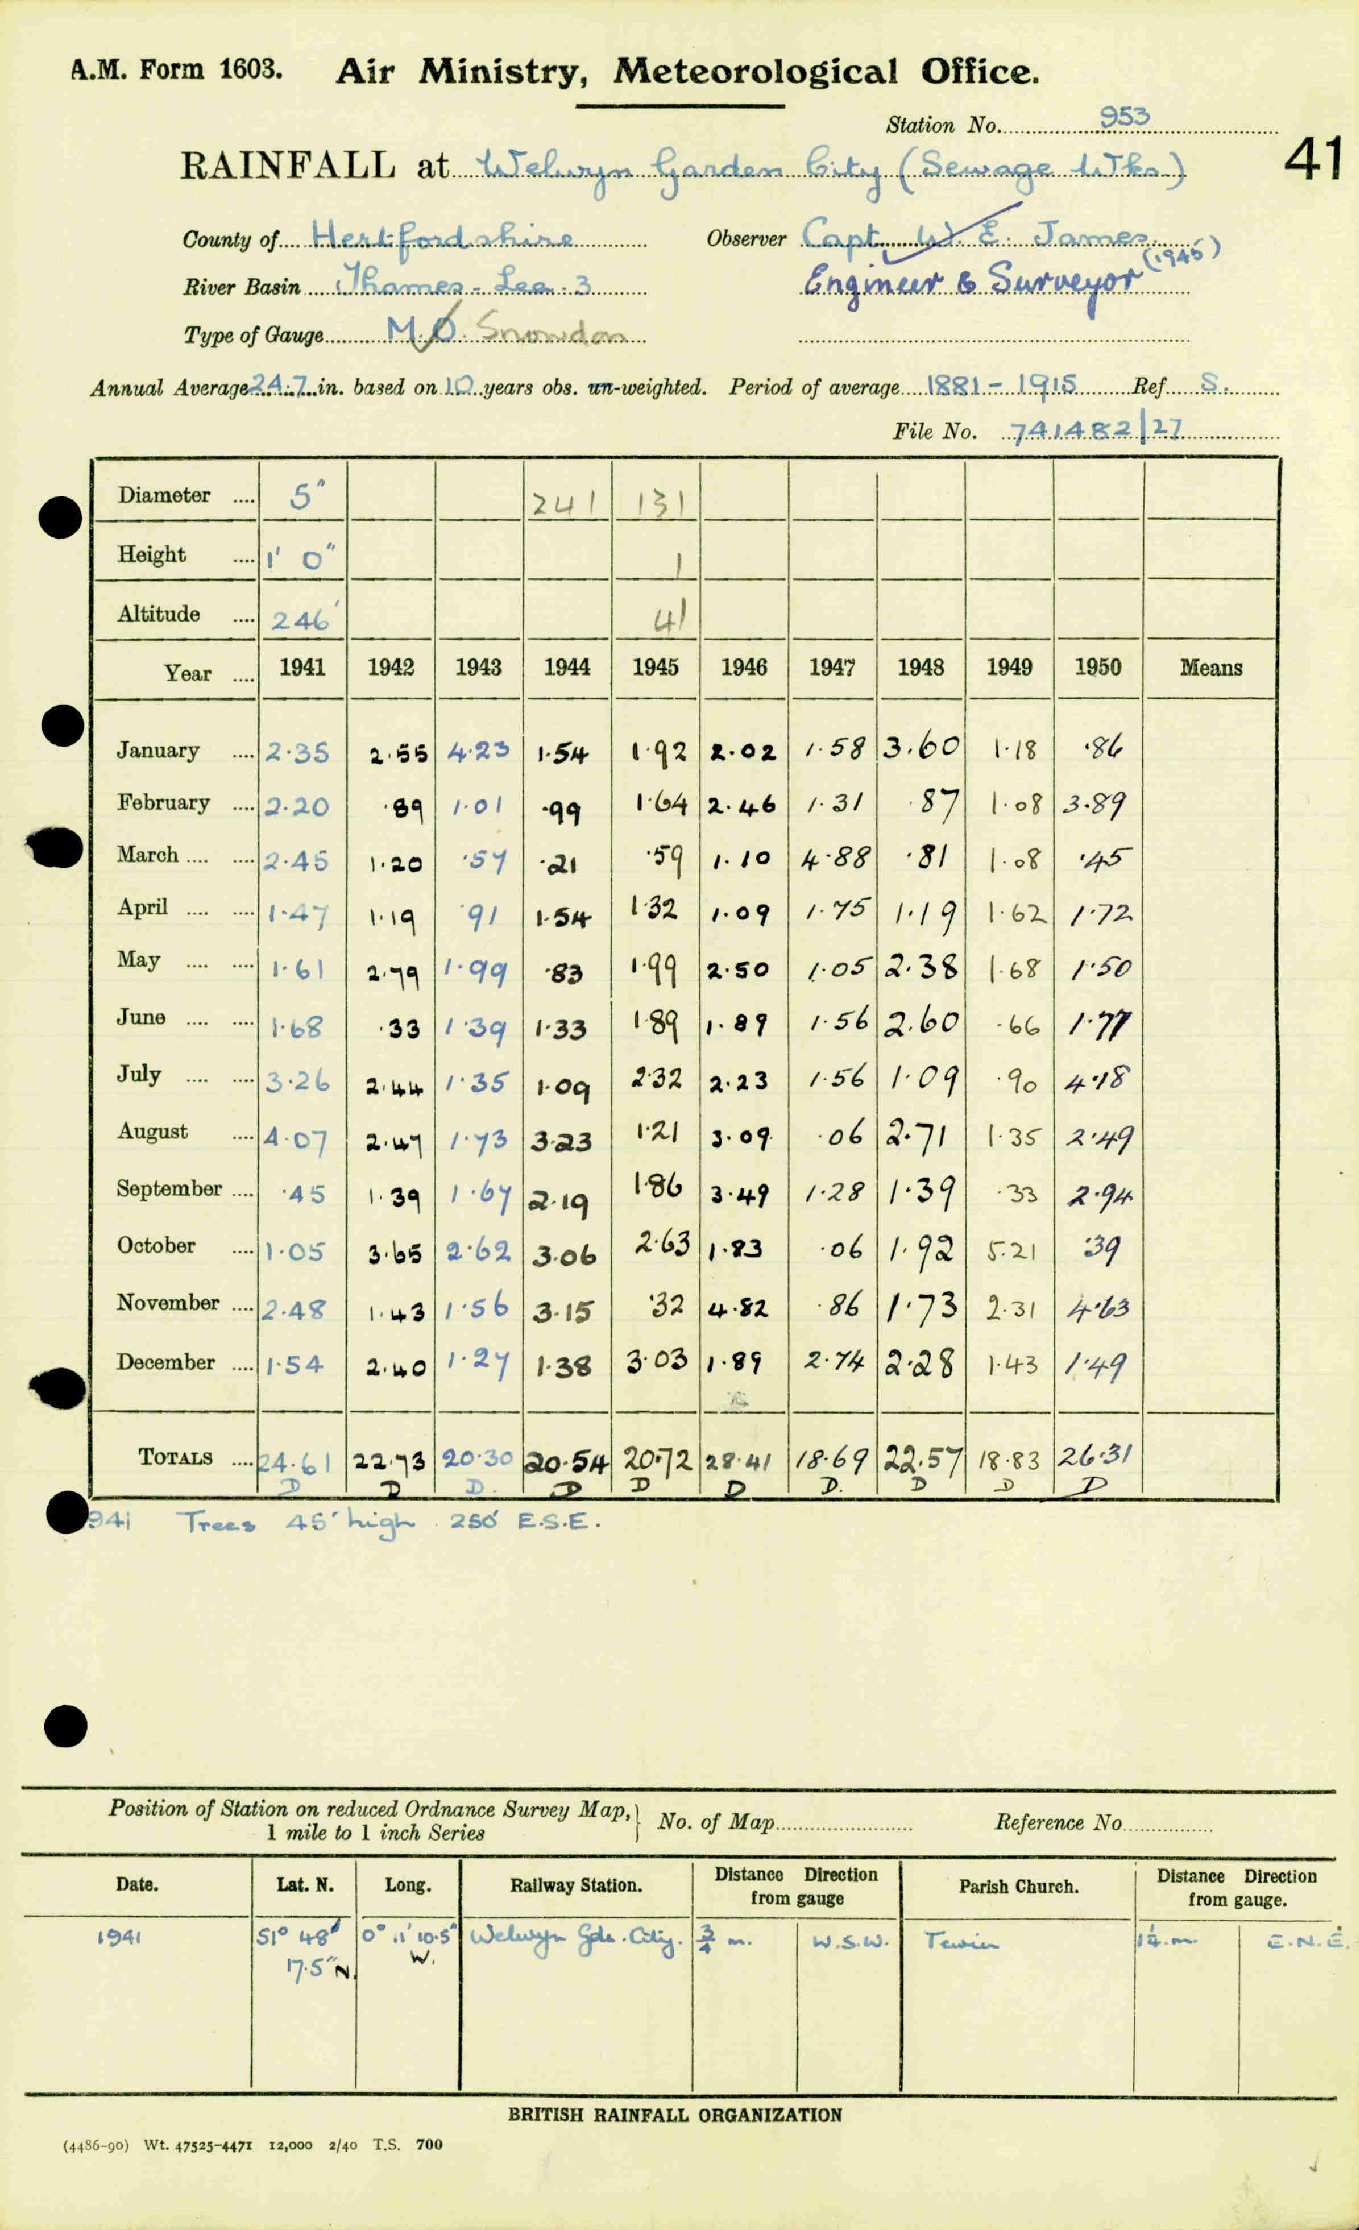 A.M. Form 1603. Air Ministry, Meteorological Office.
Station No. 953
41
RAINFALL at Welwyn Garden City (Sewage Wks)
County of Hertfordshire Observer Capt. W. E. James
River Basin Thames - Lea. 3 Engineer & Surveyor (1945)
Type of Gauge M.O. Snowdon
Annual Average 24.7 in. based on 10 years obs. un-weighted. Period of average 1881 - 1915 Ref S.
File No. 741482/27
Diameter .... 5" 241 131
Height .... 1' 0" 1
Altitude .... 246' 41
Year .... 1941 1942 1943 1944 1945 1946 1947 1948 1949 1950 Means
January .... 2.35 2.55 4.23 1.54 1.92 2.02 1.58 3.60 1.18 .86
February .... 2.20 .89 1.01 .99 1.64 2.46 1.31 .87 1.08 3.89
March .... .... 2.45 1.20 .57 .21 .59 1.10 4.88 .81 1.08 .45
April .... .... 1.47 1.19 .91 1.54 1.32 1.09 1.75 1.19 1.62 1.72
May .... .... 1.61 2.79 1.99 .83 1.99 2.50 1.05 2.38 1.68 1.50
June .... .... 1.68 .33 1.39 1.33 1.89 1.89 1.56 2.60 .66 1.77
July .... .... 3.26 2.44 1.35 1.09 2.32 2.23 1.56 1.09 .90 4.18
August .... 4.07 2.47 1.73 3.23 1.21 3.09 .06 2.71 1.35 2.49
September .... .45 1.39 1.67 2.19 1.86 3.49 1.28 1.39 .33 2.94
October .... 1.05 3.65 2.62 3.06 2.63 1.83 .06 1.92 5.21 .39
November .... 2.48 1.43 1.56 3.15 .32 4.82 .86 1.73 2.31 4.63
December .... 1.54 2.40 1.27 1.38 3.03 1.89 2.74 2.28 1.43 1.49
TOTALS .... 24.61 22.73 20.30 20.54 20.72 28.41 18.69 22.57 18.83 26.31
D D D. D D D D. D D D
941 Trees 45' high 250' E.S.E.
Position of Station on reduced Ordnance Survey Map, No. of Map Reference No.
1 mile to 1 inch Series
Date. Lat. N. Long. Railway Station. Distance Direction from gauge Parish Church. Distance Direction from gauge.
1941 51° 48' 0° 11' 10.5" Welwyn Gdn. City. 3/4 m. W.S.W. Tewin 1 1/4 m E.N.E.
17.5" N. W.
BRITISH RAINFALL ORGANIZATION
(4486-90) Wt. 47525-4471 12,000 2/40 T.S. 700